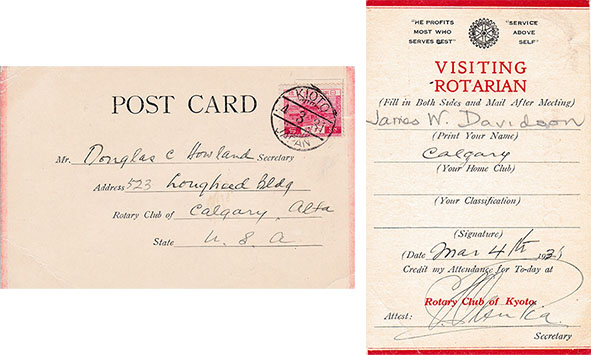 POST CARD
KYOTO
4.3.31
JAPAN
Mr. Douglas C Howland Secretary
Address 523 Lougheed Bldg
Rotary Club of Calgary, Alta
State U. S. A.
"HE PROFITS MOST WHO SERVES BEST"
"SERVICE ABOVE SELF"
VISITING
ROTARIAN
(Fill in Both Sides and Mail After Meeting)
James W. Davidson
(Print Your Name)
Calgary
(Your Home Club)
(Your Classification)
(Signature)
(Date Mar 4th 1931)
Credit my Attendance for To-day at
Rotary Club of Kyoto
Attest:
Secretary